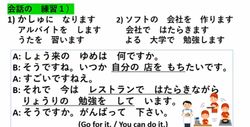 会話の　練習１）
1) かしゅに　なります
アルバイトを　します
うたを　習います
2) ソフトの　会社を　作ります
会社で　はたらきます
よる　大学で　勉強します
A: しょう来の　ゆめは　何ですか。
B: そうですね。いつか 自分の 店を もちたいです。
A: すごいですねえ。
B: それで　今は　レストランで　はたらきながら
りょうりの　勉強を　して　います。
A: そうですか。がんばって　下さい。
(Go for it. / You can do it.)